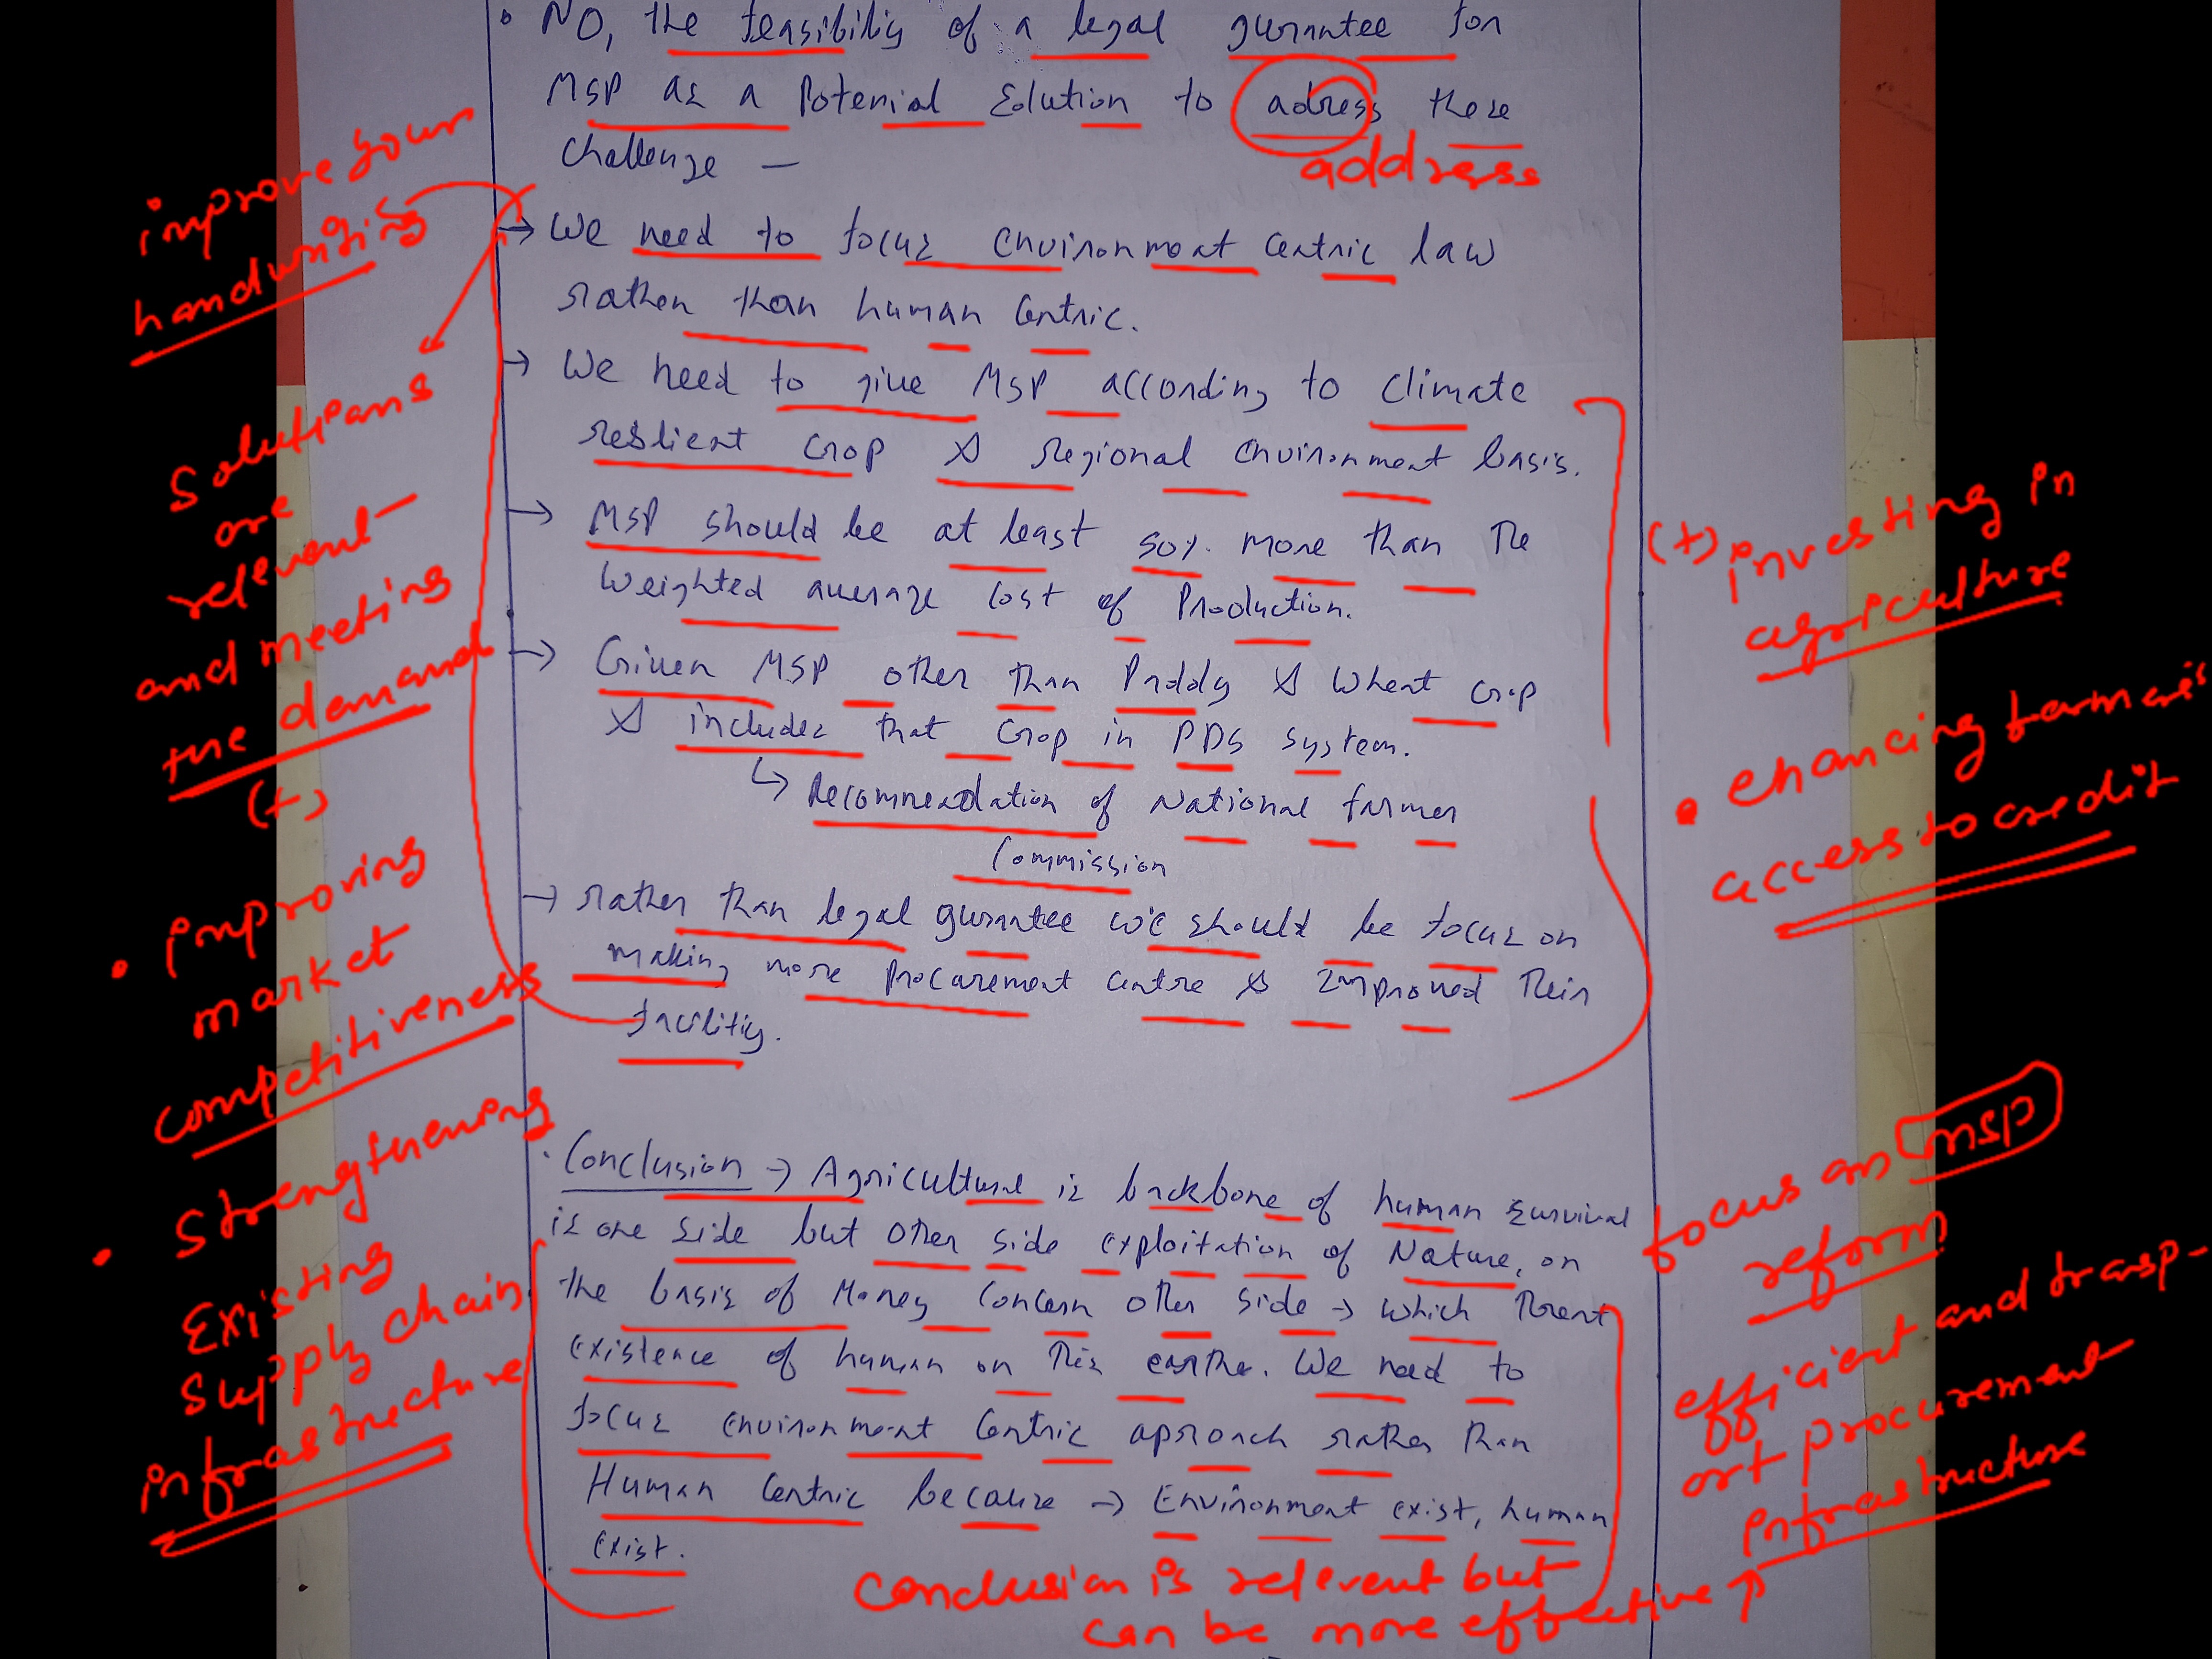 • NO, the feasibiliy of a legal gurantee for
MSP as a Potenial Solution to adress these
address
Challenge —
→ We need to focus environment centric law
rather than human Centric.
→ We need to give MSP according to climate
reslient crop & regional environment basis.
→ MSP should be at least 50% more than the
weighted average cost of Production.
→ Given MSP other than Paddy & Wheat crop
& includes that crop in PDS system.
↳ Recommendation of National farmer
Commission
→ rather than legal gurantee we should be focus on
making more procurement centre & Improved their
facilitiy.
• Conclusion → Agricultural is backbone of human survival
is one side but other side exploitation of Nature, on
the basis of Money concern other side → which threat
existence of human on this earth. We need to
focus environment Centric aproach rather than
Human Centric because → Environment exist, human
exist.
conclusion is relevent but
can be more effective ↑
• improve your
handwriting
Solutions
are
relevent
and meeting
the demand
(+)
• improving
market
competitiveness
• Strengthening
Existing
supply chain
infrastructure
(+) investing in
agriculture
• ehancing farmer's
access to credit
focus on MSP
reform
efficient and transp-
ort procurement
infrastructure